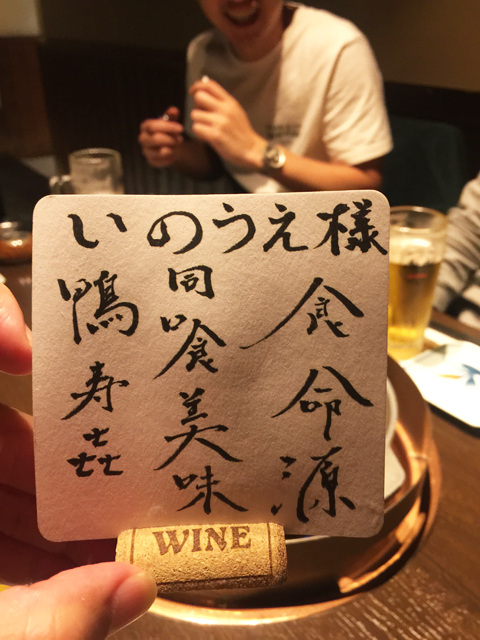 いのうえ様
食命源
同喰美味
鴨寿㐂
WINE